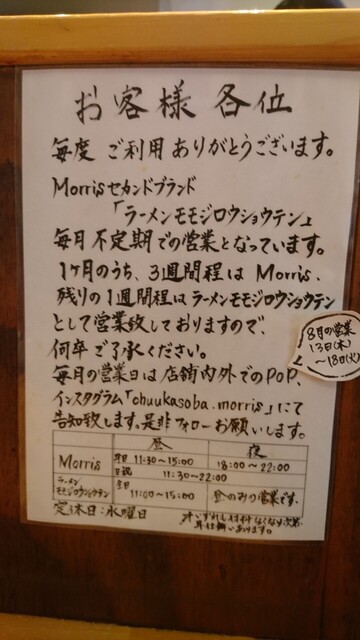 お客様各位
毎度 ご利用ありがとうございます。
Morrisセカンドブランド
「ラーメンモモジロウショウテン」
毎月不定期での営業となっています。
1ヶ月のうち、3週間程は Morris、
残りの1週間程はラーメンモモジロウショウテン
として営業致しておりますので、
何卒ご了承ください。
毎月の営業日は店舗内外でのPOP、
インスタグラム「chuukasoba.morris」にて
告知致します。是非フォローお願いします。
8月の営業
13日(木)
〜18日(火)
昼 夜
Morris 平日 11:30〜15:00 18:00〜22:00
日祝 11:30〜22:00
ラーメンモモジロウショウテン 全日 11:00〜15:00 昼のみの営業です。
定休日:水曜日
※いずれも材料なくなり次第、